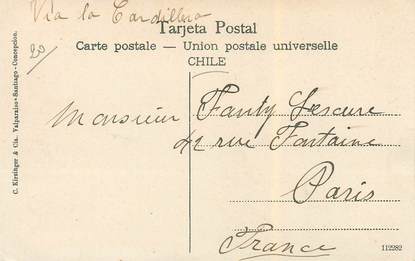 Via la Cordillera
Tarjeta Postal
Carte postale — Union postale universelle
CHILE
20
C. Kirsinger & Cia. Valparaiso-Santiago-Concepcion.
Monsieur Fanty Lescure
42 rue Fontaine
Paris
France
112282